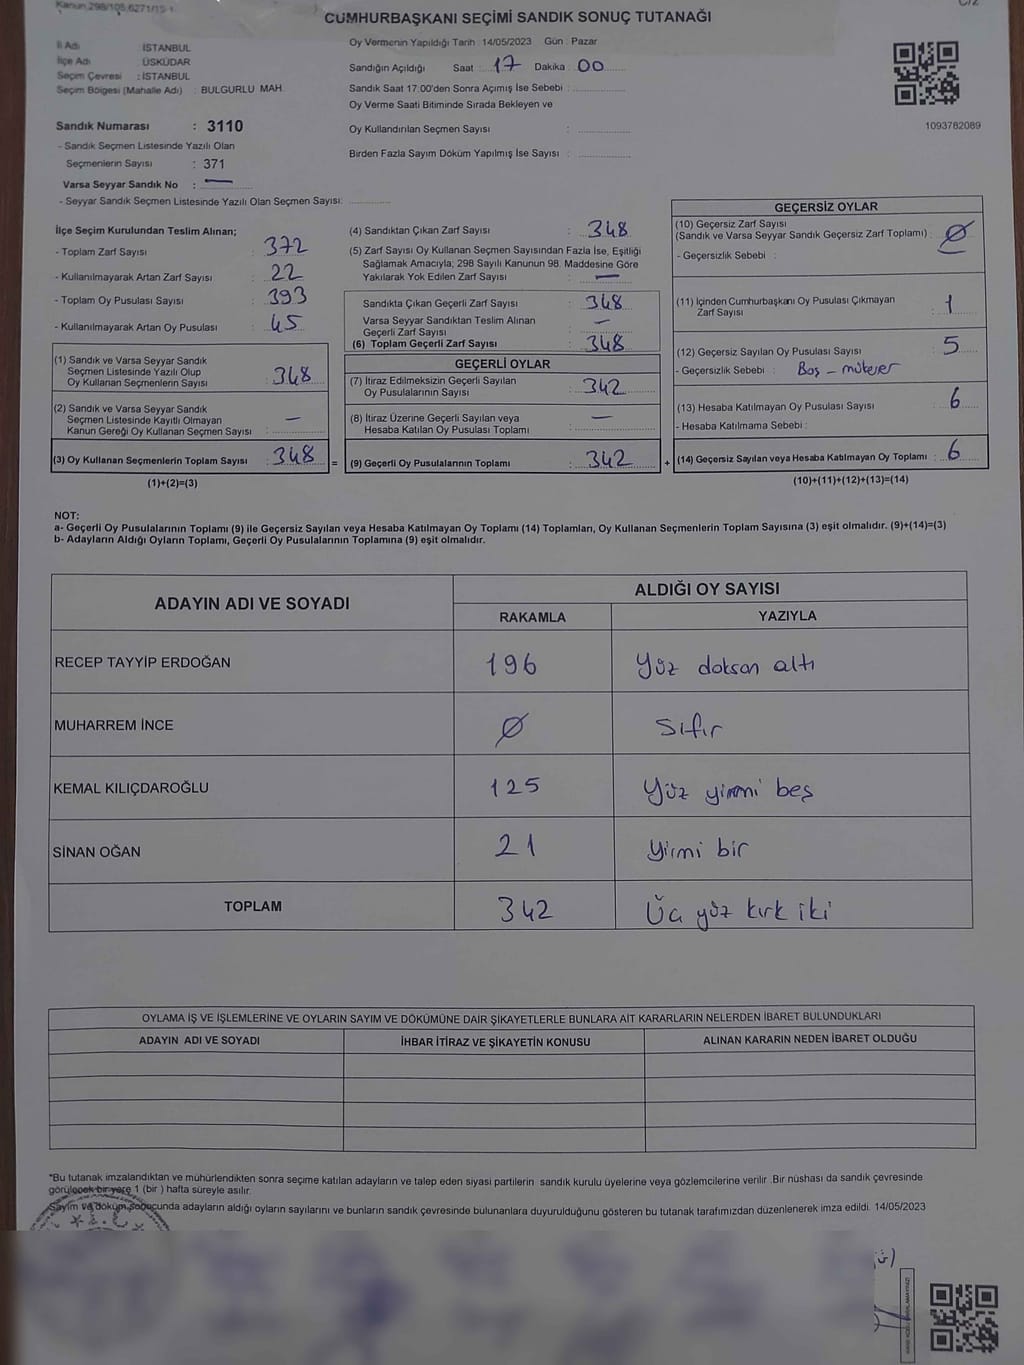 Kanun 298/105.6271/15-1
C/2
CUMHURBAŞKANI SEÇİMİ SANDIK SONUÇ TUTANAĞI
İl Adı : İSTANBUL
İlçe Adı : ÜSKÜDAR
Seçim Çevresi : İSTANBUL
Seçim Bölgesi (Mahalle Adı) : BULGURLU MAH.
Sandık Numarası : 3110
- Sandık Seçmen Listesinde Yazılı Olan
Seçmenlerin Sayısı : 371
Varsa Seyyar Sandık No : —
- Seyyar Sandık Seçmen Listesinde Yazılı Olan Seçmen Sayısı:
Oy Vermenin Yapıldığı Tarih : 14/05/2023 Gün : Pazar
Sandığın Açıldığı Saat : 17 Dakika : 00
Sandık Saat 17:00'den Sonra Açımış İse Sebebi :
Oy Verme Saati Bitiminde Sırada Bekleyen ve
Oy Kullandırılan Seçmen Sayısı :
Birden Fazla Sayım Döküm Yapılmış İse Sayısı :
1093782089
İlçe Seçim Kurulundan Teslim Alınan;
- Toplam Zarf Sayısı : 372
- Kullanılmayarak Artan Zarf Sayısı : 22
- Toplam Oy Pusulası Sayısı : 393
- Kullanılmayarak Artan Oy Pusulası : 45
(1) Sandık ve Varsa Seyyar Sandık
Seçmen Listesinde Yazılı Olup
Oy Kullanan Seçmenlerin Sayısı : 348
(2) Sandık ve Varsa Seyyar Sandık
Seçmen Listesinde Kayıtlı Olmayan
Kanun Gereği Oy Kullanan Seçmen Sayısı : —
(3) Oy Kullanan Seçmenlerin Toplam Sayısı : 348 =
(1)+(2)=(3)
(4) Sandıktan Çıkan Zarf Sayısı : 348
(5) Zarf Sayısı Oy Kullanan Seçmen Sayısından Fazla İse, Eşitliği
Sağlamak Amacıyla; 298 Sayılı Kanunun 98. Maddesine Göre
Yakılarak Yok Edilen Zarf Sayısı : —
Sandıkta Çıkan Geçerli Zarf Sayısı : 348
Varsa Seyyar Sandıktan Teslim Alınan
Geçerli Zarf Sayısı : —
(6) Toplam Geçerli Zarf Sayısı : 348
GEÇERLİ OYLAR
(7) İtiraz Edilmeksizin Geçerli Sayılan
Oy Pusulalarının Sayısı : 342
(8) İtiraz Üzerine Geçerli Sayılan veya
Hesaba Katılan Oy Pusulası Toplamı : —
(9) Geçerli Oy Pusulalarının Toplamı : 342 +
GEÇERSİZ OYLAR
(10) Geçersiz Zarf Sayısı
(Sandık ve Varsa Seyyar Sandık Geçersiz Zarf Toplamı) : Ø
- Geçersizlik Sebebi :
(11) İçinden Cumhurbaşkanı Oy Pusulası Çıkmayan
Zarf Sayısı : 1
(12) Geçersiz Sayılan Oy Pusulası Sayısı : 5
- Geçersizlik Sebebi : Boş - mükerer
(13) Hesaba Katılmayan Oy Pusulası Sayısı : 6
- Hesaba Katılmama Sebebi :
(14) Geçersiz Sayılan veya Hesaba Katılmayan Oy Toplamı : 6
(10)+(11)+(12)+(13)=(14)
NOT:
a- Geçerli Oy Pusulalarının Toplamı (9) ile Geçersiz Sayılan veya Hesaba Katılmayan Oy Toplamı (14) Toplamları, Oy Kullanan Seçmenlerin Toplam Sayısına (3) eşit olmalıdır. (9)+(14)=(3)
b- Adayların Aldığı Oyların Toplamı, Geçerli Oy Pusulalarının Toplamına (9) eşit olmalıdır.
ADAYIN ADI VE SOYADI ALDIĞI OY SAYISI
RAKAMLA YAZIYLA
RECEP TAYYİP ERDOĞAN 196 Yüz doksan altı
MUHARREM İNCE Ø Sıfır
KEMAL KILIÇDAROĞLU 125 Yüz yirmi beş
SİNAN OĞAN 21 Yirmi bir
TOPLAM 342 Üç yüz kırk iki
OYLAMA İŞ VE İŞLEMLERİNE VE OYLARIN SAYIM VE DÖKÜMÜNE DAİR ŞİKAYETLERLE BUNLARA AİT KARARLARIN NELERDEN İBARET BULUNDUKLARI
ADAYIN ADI VE SOYADI İHBAR İTİRAZ VE ŞİKAYETİN KONUSU ALINAN KARARIN NEDEN İBARET OLDUĞU
*Bu tutanak imzalandıktan ve mühürlendikten sonra seçime katılan adayların ve talep eden siyasi partilerin sandık kurulu üyelerine veya gözlemcilerine verilir. Bir nüshası da sandık çevresinde
görülecek bir yere 1 (bir ) hafta süreyle asılır.
Sayım ve döküm sonucunda adayların aldığı oyların sayılarını ve bunların sandık çevresinde bulunanlara duyurulduğunu gösteren bu tutanak tarafımızdan düzenlenerek imza edildi. 14/05/2023
T.C.